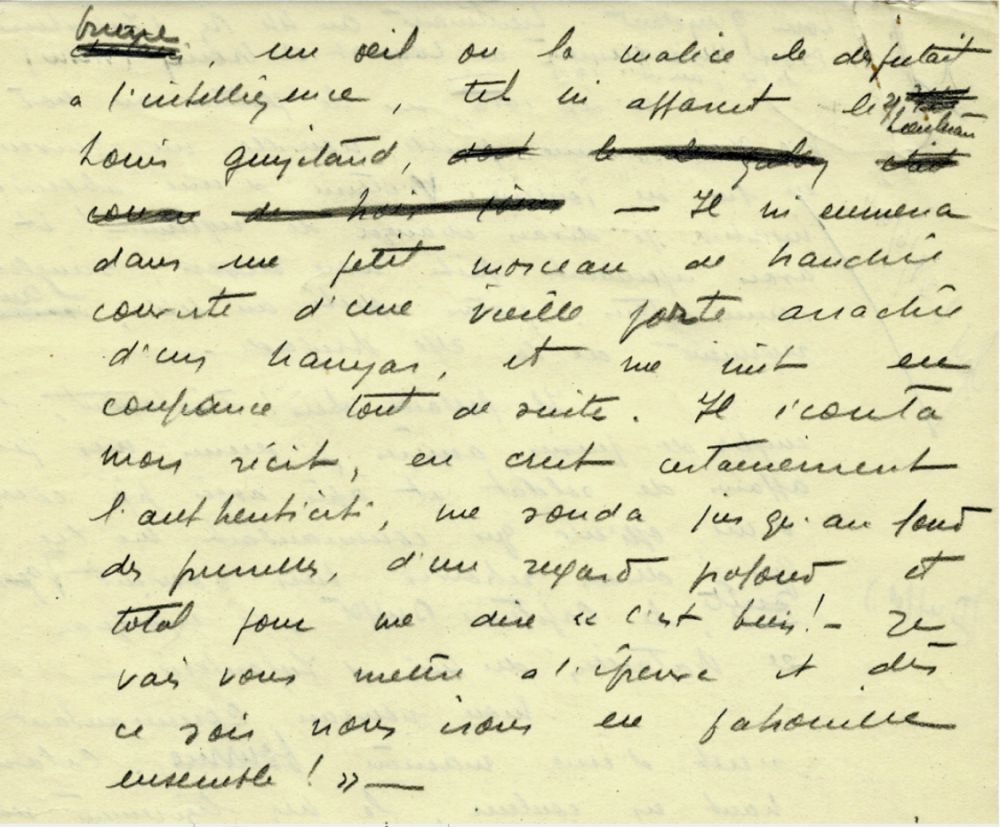 brune
, un oeil ou la malice le disputait
a l'intelligence, tel m'apparut le
Louis Guyétand,
— Il m'emmena
dans un petit morceau de tranchée
couverte d'une vieille porte arrachée
d'un hangar, et me mit en
confiance tout de suite. Il écouta
mon récit, en crut certainement
l'authenticité, me sonda jusqu'au fond
des prunelles, d'un regard profond et
total pour me dire « c'est bien! – Je
vais vous mettre a l'épreuve et dès
ce soir nous irons en patrouille
ensemble! » —